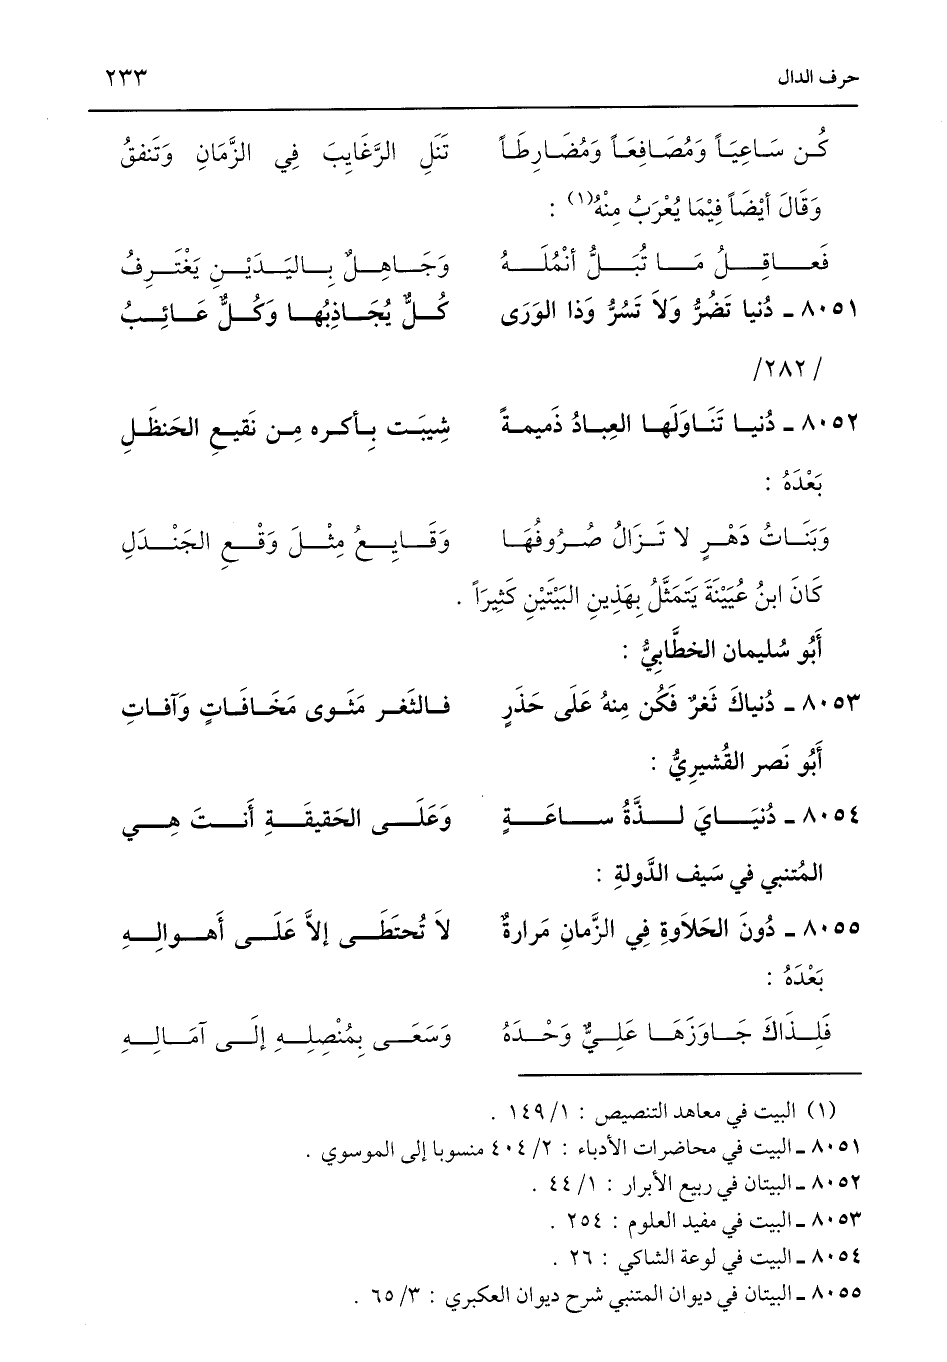 حرف الدال ٢٣٣
كُن سَاعِيَاً وَمُصَافِعَاً وَمُضَارِطَاً تَنَلِ الرَّغَايِبَ فِي الزَّمَانِ وَتَنفقُ
وَقَالَ أَيْضَاً فِيْمَا يُعْرَبُ مِنْهُ(١) :
فَعـاقِـلُ مَـا تُبَـلُّ أنْمُلَـهُ وَجَـاهِـلٌ بِـاليَـدَيْـنِ يَغْتَـرِفُ
٨٠٥١ ـ دُنيا تَضُرُّ وَلاَ تَسُرُّ وَذا الوَرَى كُـلٌّ يُجَـاذِبُهـا وَكُـلٌّ عَـائِـبُ
/٢٨٢/
٨٠٥٢ ـ دُنيـا تَنَـاوَلَهـا العِبـادُ ذَميمـةً شِيبَـت بِـأكـره مِـن نَقيعِ الحَنظَـلِ
بَعْدَهُ :
وَبَنَـاتُ دَهْـرٍ لا تَـزَالُ صُـرُوفُهَـا وَقَـايِـعُ مِثْـلَ وَقْـعِ الجَنْـدَلِ
كَانَ ابنُ عُيَيْنَةَ يَتَمَثَّلُ بِهَذِينِ البَيْتَيْنِ كَثِيرَاً .
أَبُو سُليمان الخطَّابِيُّ :
٨٠٥٣ ـ دُنياكَ ثَغرٌ فَكُن مِنهُ عَلَى حَذَرٍ فـالثَغـر مَثـوى مَخَـافَـاتٍ وَآفـاتِ
أَبُو نَصر القُشيرِيُّ :
٨٠٥٤ ـ دُنيَـايَ لـذَّةُ سـاعَـةٍ وَعَلَـى الحَقيقَـةِ أَنـتَ هِـي
المُتنبي في سَيف الدَّولةِ :
٨٠٥٥ ـ دُونَ الحَلاَوةِ فِي الزَّمانِ مَرارةٌ لاَ تُحتَطَـى إلاَّ عَلَـى أَهـوالِـهِ
بَعْدَهُ :
فَلِـذَاكَ جَـاوَزَهَـا عَلِـيٌّ وَحْـدَهُ وَسَعَـى بِمُنْصِلِـهِ إِلَـى آمَـالِـهِ
(١) البيت في معاهد التنصيص : ١/ ١٤٩ .
٨٠٥١ ـ البيت في محاضرات الأدباء : ٢/ ٤٠٤ منسوبا إلى الموسوي .
٨٠٥٢ ـ البيتان في ربيع الأبرار : ١/ ٤٤ .
٨٠٥٣ ـ البيت في مفيد العلوم : ٢٥٤ .
٨٠٥٤ ـ البيت في لوعة الشاكي : ٢٦ .
٨٠٥٥ ـ البيتان في ديوان المتنبي شرح ديوان العكبري : ٣/ ٦٥ .